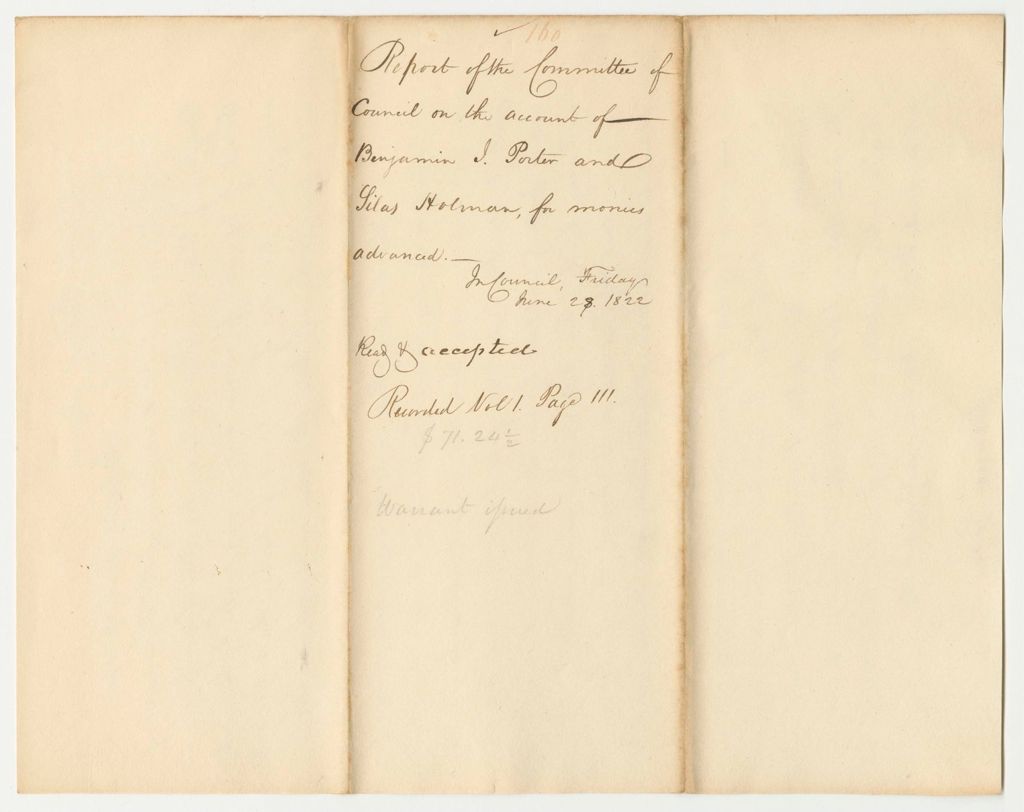 160
Report of the Committee of
Council on the account of
Benjamin J. Porter and
Silas Holman, for monies
advanced.—
In Council, Friday
June 28. 1822
Read & accepted
Recorded Vol 1. Page 111.
$71.24½
Warrant issued